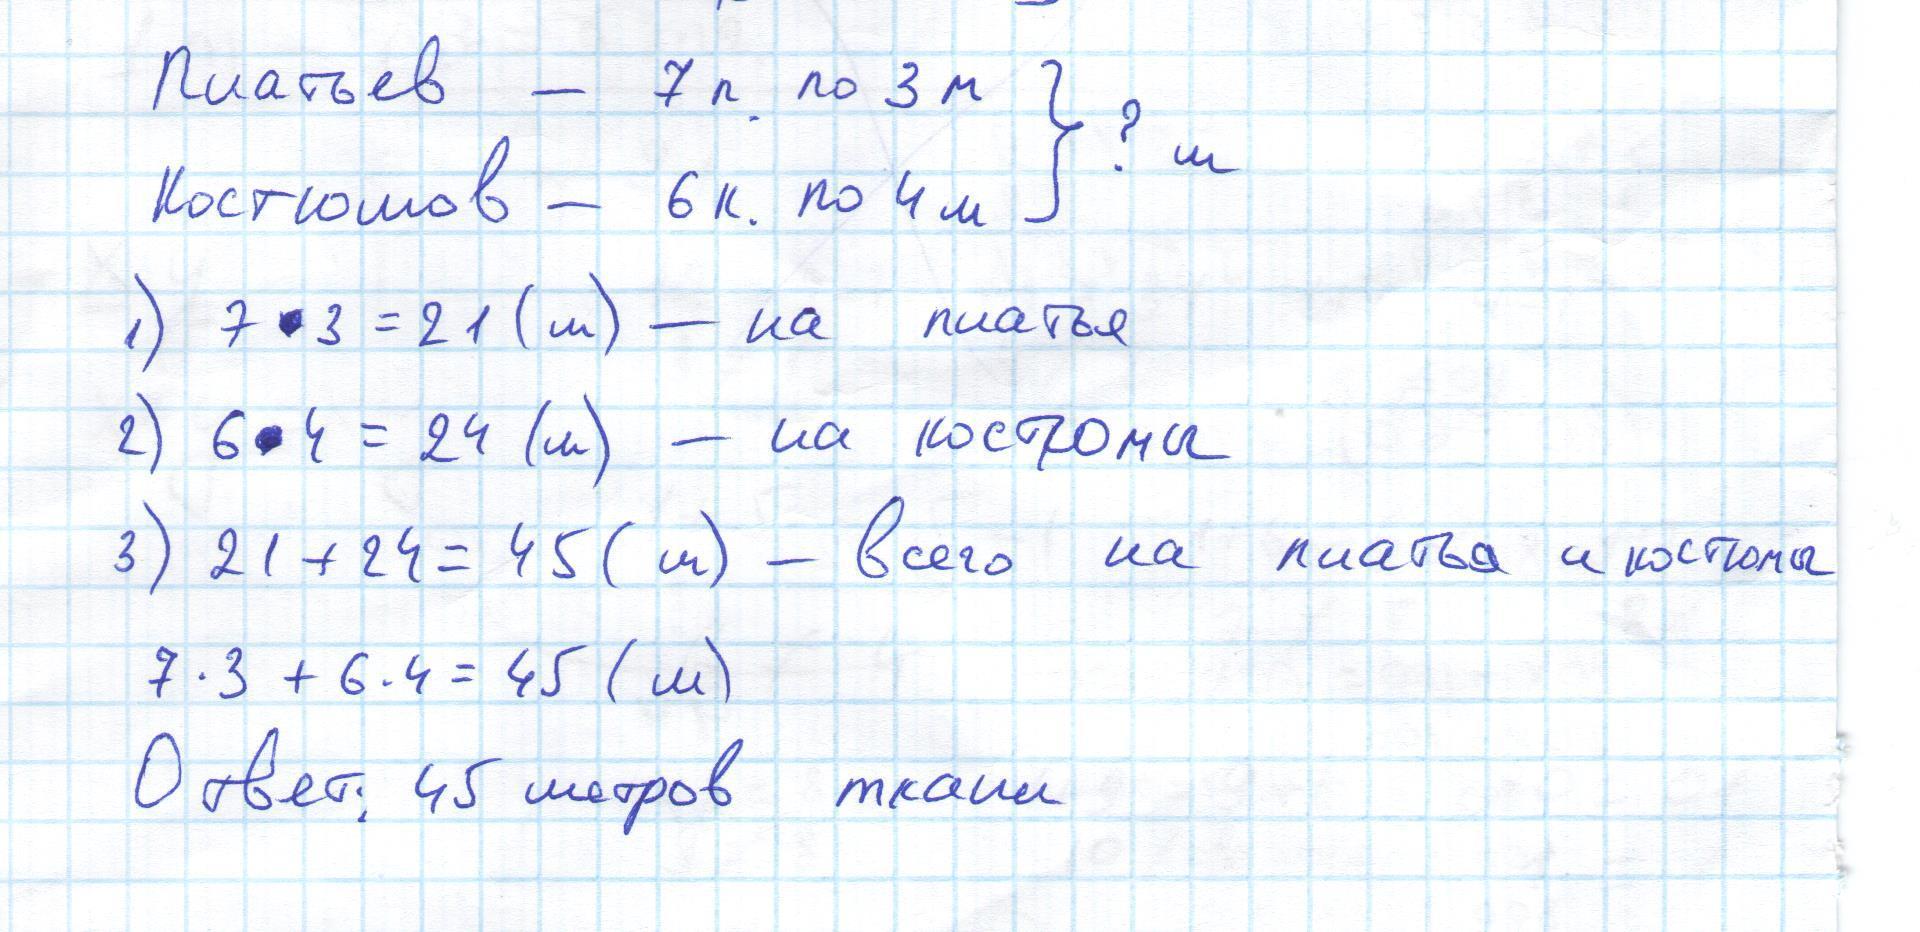 Платьев – 7 п. по 3 м
Костюмов – 6 к. по 4 м } ? м
1) 7 • 3 = 21 (м) – на платья
2) 6 • 4 = 24 (м) – на костюмы
3) 21 + 24 = 45 (м) – всего на платья и костюмы
7 · 3 + 6 · 4 = 45 (м)
Ответ: 45 метров ткани